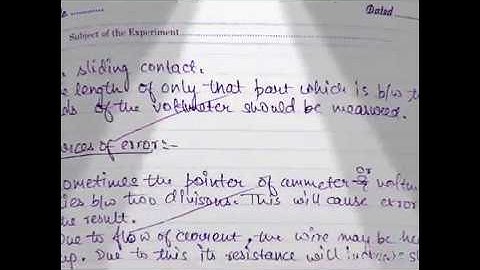 Dated
Subject of the Experiment
sliding contact.
length of only that part which is b/w
of the voltmeter should be measured.
of error:-
ometimes the pointer of ammeter or
b/w two divisons. This will cause error
the result.
Due to flow of current, the wire may be
up. Due to this its resistance will